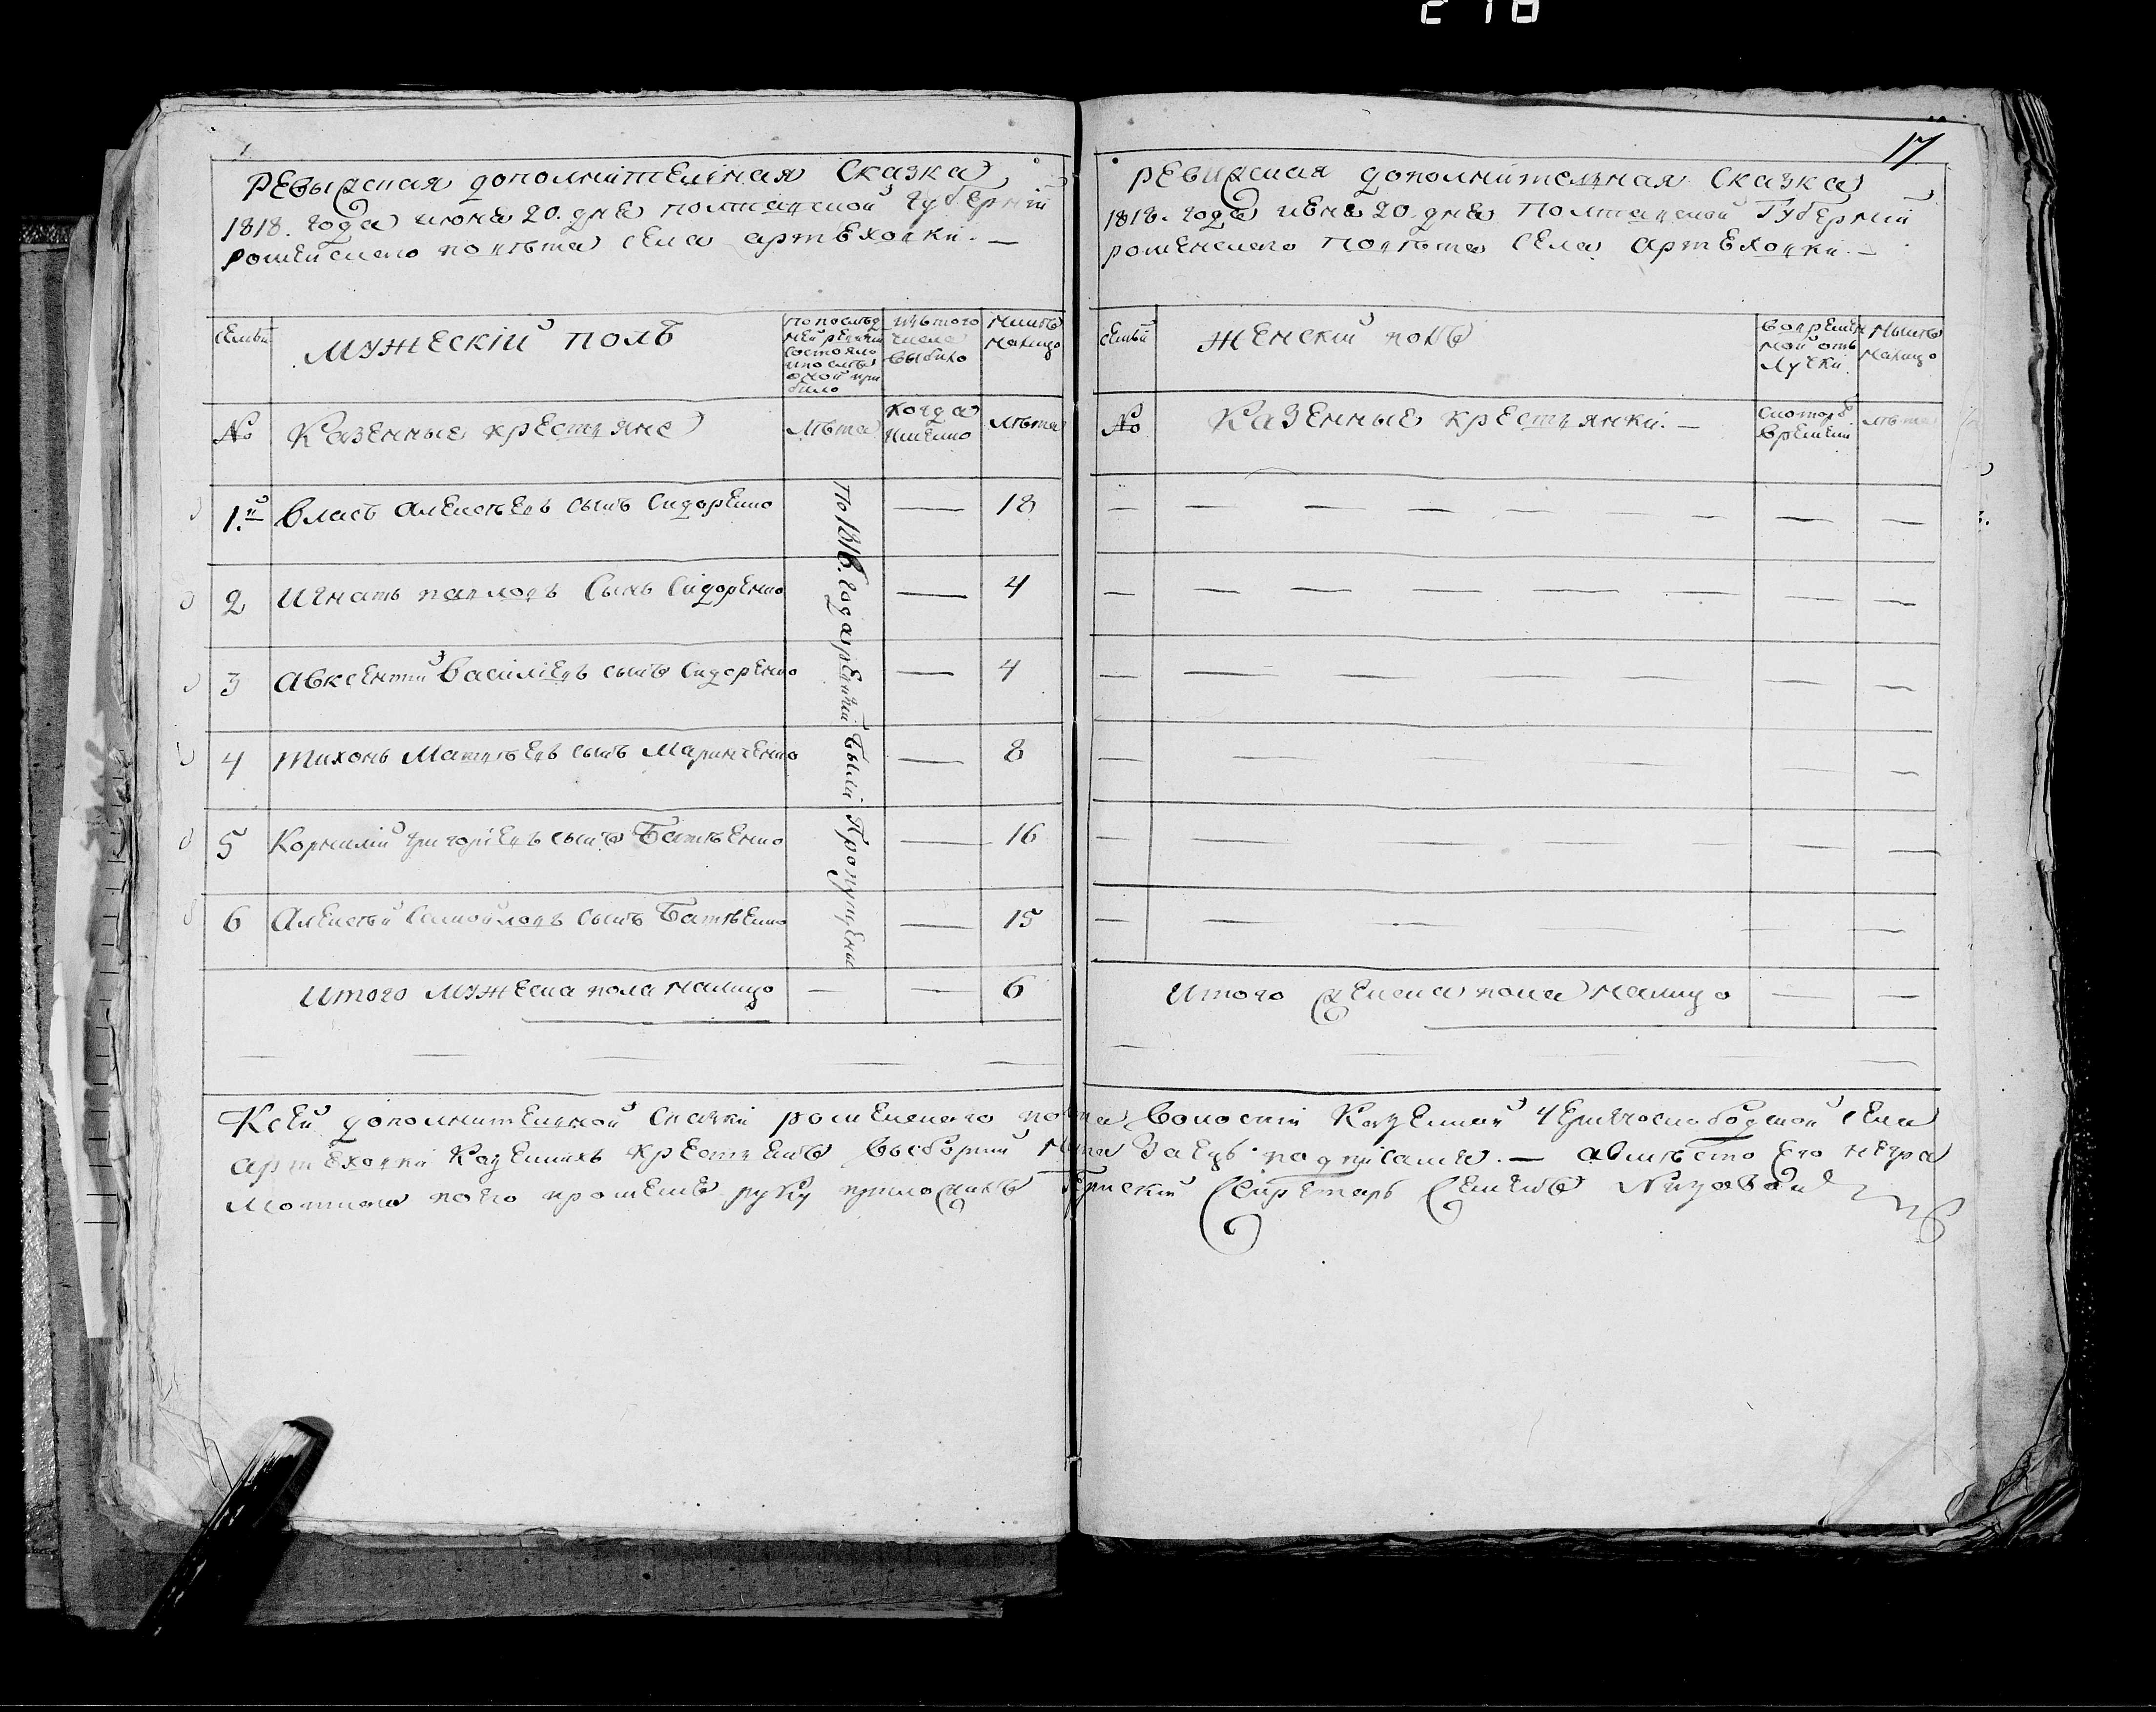 218
Ревызская дополнителная Сказка
1818. года июня 20. дня полтавской Губерний
роменского повѣта села артѣховки. —
семьи
мужескій полъ
По последней ревизии состояло и после оной прибыло
изъ того числа выбыло
Нынѣ налицо
№
Казенные крестьяне
лѣта
когда имянно
лѣта
По 1816. год аревизий были пропущены
1.й Власъ алексѣевъ сынъ Сидоренко — 18
2 Игнатъ павловъ Сынъ Сидоренко — 4
3 Авксентий Василіевъ сынъ Сидоренко — 4
4 тихонъ Матвѣевъ сынъ Маринченко — 8
5 Корнилій григоріевъ сынъ Батѣенко — 16
6 Алексѣй Самойловъ сынъ Батѣенко — 15
Итого мужеска пола налицо — — 6
17
ревизская дополнителная Сказка
1818. года июня 20. дня Полтавской Губерний
роменского повѣта Села артѣховки. —
семьи
женскій полъ
во временной отлучки
Нынѣ налицо
№
Казенные крестьянки. —
С которого времени
лѣта
Итого женска пола налицо — —
Ксей дополнителной Сказки роменского повѣта волосній Казенной села
артѣховки Казенныхъ крестьянъ выборный Заецъ подписался. — авмѣсто его неграмотного
по его прошению руку приложилъ Секретарь Семенъ